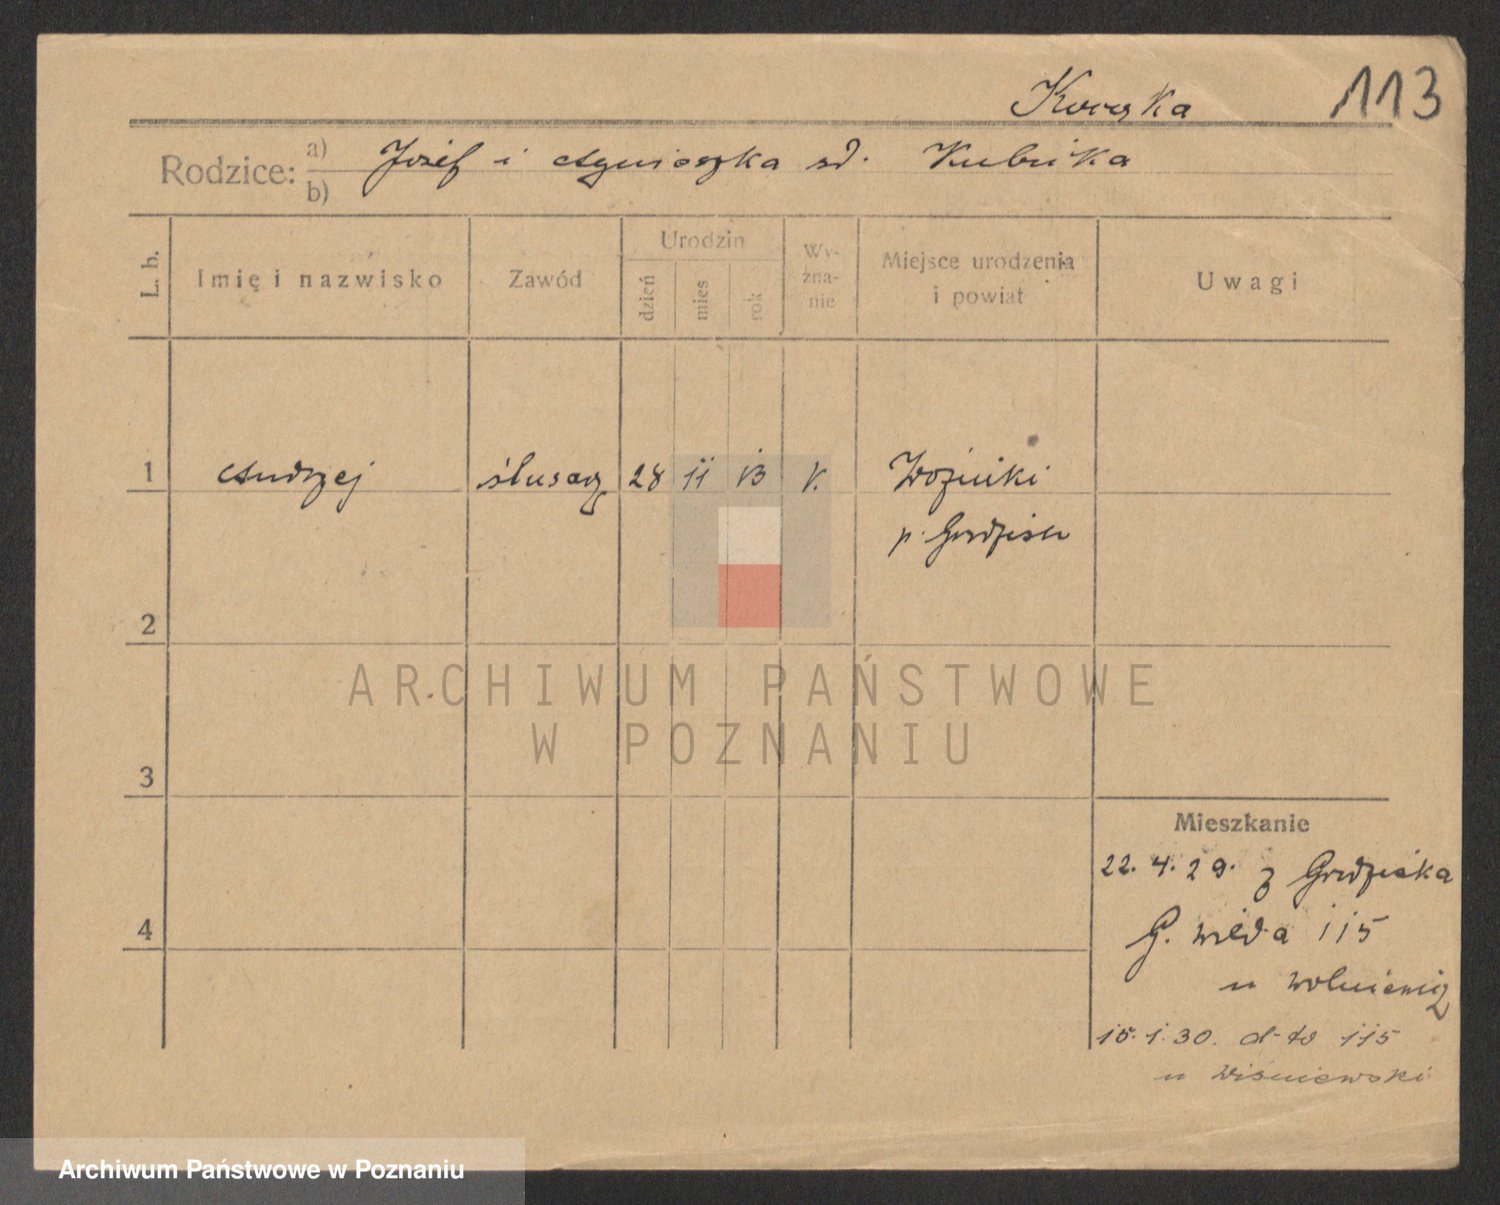 113
Rodzice: a) Józef i Agnieszka zd. Kubicka
b)
L. b.
Imię i nazwisko
Zawód
Urodzin
dzień
mies
rok
Wy-
zna-
nie
Miejsce urodzenia
i powiat
Uwagi
1 Andrzej ślusarz 28 11 13 k. Woźniki
p. Grodzisk
2
3
4
Mieszkanie
22. 4. 29. z Grodziska
G. Wilda 115
u
15. 1. 30. d-to 115
u Wiśniewski
ARCHIWUM PAŃSTWOWE
W POZNANIU
Archiwum Państwowe w Poznaniu